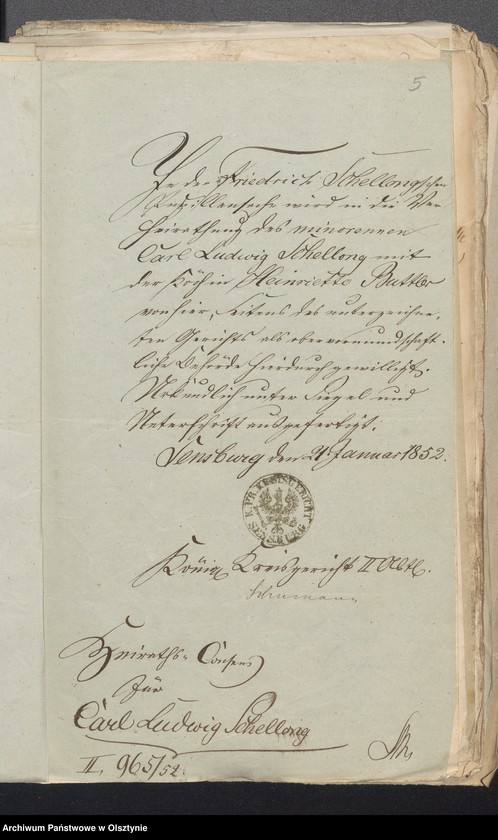 5
In der Friedrich Schellongschen
Pupillensache wird in die Ver
heirathung des minorennen
Carl Ludwig Schellong mit
der Köchin Heinriette Butter
von hier, Seitens des unterzeichne,
ten Gerichts als obervormundschaft,
liche Behörde hierdurch gewilligt.
Urkundlich unter Siegel und
Unterschrift ausgefertigt.
Sensburg den 21 Januar 1852.
K. PR. KREISGERICHT
SENSBURG
Königl Kreisgericht II Abtl.
Schumann
Heiraths-Consens
für
Carl Ludwig Schellong
II, 965/52.
Archiwum Państwowe w Olsztynie